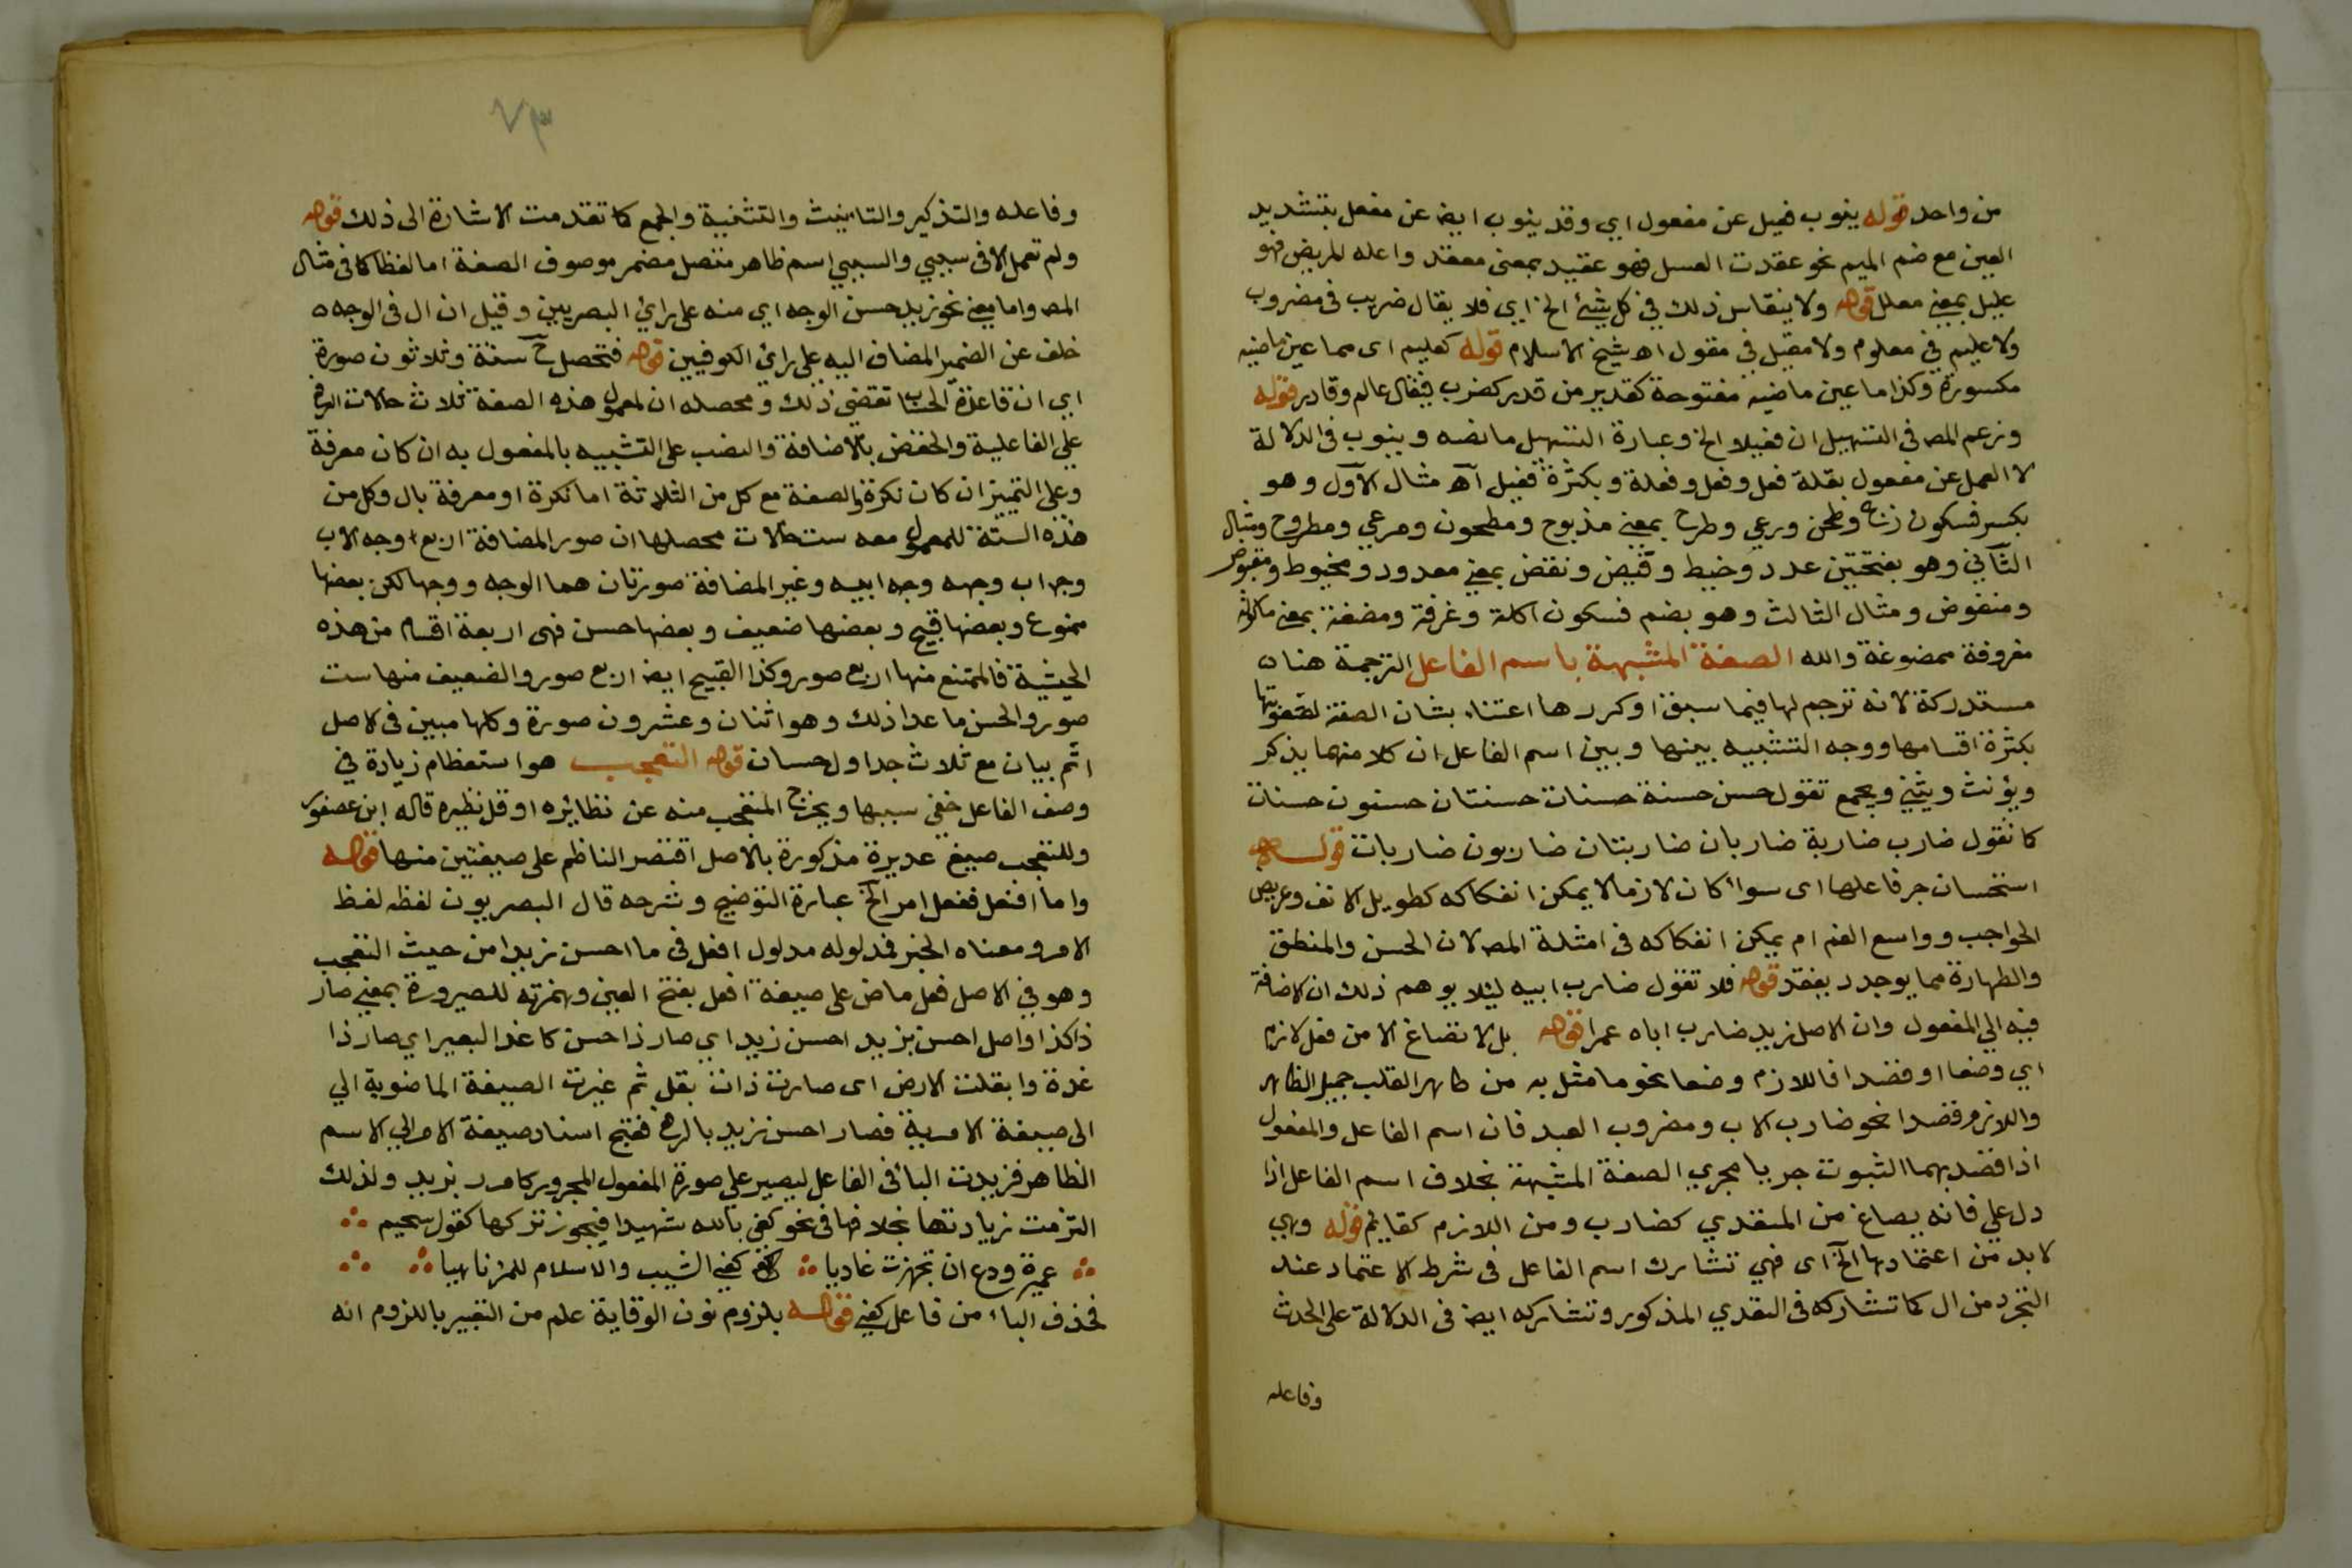 من واحد قوله ينوب فعيل عن مفعول اي وقد ينوب ايض عن مفعل بتشديد
العين مع ضم الميم نحو عقدت العسل فهو عقيد بمعنى معقد واعله المريض فهو
عليل بمعني معلل قوله ولا ينقاس ذلك في كل شئ الخ اي فلا يقال ضريب في مضروب
ولا عليم في معلوم ولا مقيل في مقول اه شيخ الاسلام قوله كعليم اى مما عين ماضيه
مكسورة وكذا ما عين ماضيه مفتوحة كقدير من قدر كضرب فيقال عالم وقادر قوله
وزعم المص في التسهيل ان فعيلا الخ وعبارة التسهيل ما نصه وينوب في الدلالة
لا العمل عن مفعول بقلة فعل وفعل وفعلة وبكثرة فعيل اه مثال الاول وهو
بكسر فسكون ذبح وطحن ورعي وطرح بمعني مذبوح ومطحون ومرعي ومطروح ومثال
الثاني وهو بفتحتين عدد وخبط وقبض ونفض بمعني معدود ومخبوط ومقبوض
ومنفوض ومثال الثالث وهو بضم فسكون اكلة وغرفة ومضغة بمعني ماكولة
مغروفة ممضوغة والله الصفة المشبهة باسم الفاعل الترجمة هنا
مستدركة لانه ترجم لها فيما سبق او كررها اعتناء بشان الصفة لصعوبتها
بكثرة اقسامها ووجه التشبيه بينها وبين اسم الفاعل ان كلا منهما يذكر
ويؤنث ويثني ويجمع تقول حسن حسنة حسنات حسنتان حسنون حسنات
كما تقول ضارب ضاربة ضاربان ضاربتان ضاربون ضاربات قوله
استحسان جر فاعلها اى سواء كان لازما لا يمكن انفكاكه كطويل الانف وعريض
الحواجب وواسع الفم ام يمكن انفكاكه في امثلة المص لان الحسن والمنطق
والطهارة مما يوجد ويفقد قوله فلا تقول ضارب ابيه ليئلا يوهم ذلك ان الاضافة
فيه الي المفعول وان الاصل زيد ضارب اباه عمرا قوله بل لا تصاغ الا من فعل لازم
اي وضعا او قصدا فاللازم وضعا نحو ما مثل به من طاهر القلب جميل الظاهر
واللازم قصدا نحو ضارب الاب ومضروب العبد فان اسم الفاعل والمفعول
اذا قصد بهما الثبوت جريا مجري الصفة المشبهة بخلاف اسم الفاعل اذا
دل علي فانه يصاغ من المتعدي كضارب ومن اللازم كقايم قوله وهي
لا بد من اعتمادها الخ اى فهي تشارك اسم الفاعل في شرط الاعتماد عند
التجرد من ال كما تشاركه في التعدي المذكور وتشاركه ايض في الدلالة على الحدث
وفاعله
وفاعله والتذكير والتانيث والتثنية والجمع كما تقدمت الاشارة الى ذلك قوله
ولم تعمل الا في سببي والسببي اسم ظاهر متصل مضمر موصوف الصفة اما لفظا كما في مثال
المص واما معني نحو زيد حسن الوجه اي منه على راي البصريين وقيل ان ال في الوجه
خلف عن الضمير المضاف اليه علي راى الكوفيين قوله فتحصل ح ستة وثلاثون صورة
اي ان قاعدة الحساب تقتضي ذلك ومحصله ان لمعمول هذه الصفة ثلاث حالات الرفع
علي الفاعلية والخفض بالاضافة والنصب على التشبيه بالمفعول به ان كان معرفة
وعلى التمييز ان كان نكرة والصفة مع كل من الثلاثة اما نكرة او معرفة بال وكل من
هذه الستة للمعمول معه ست حالات محصلها ان صور المضافة اربع وجه الاب
وجه اب وجهه وجه ابيه وغير المضافة صورتان هما الوجه ووجها لكن بعضها
ممنوع وبعضها قبيح وبعضها ضعيف وبعضها حسن فهى اربعة اقسام من هذه
الحيثية فالممتنع منها اربع صور وكذا القبيح ايض اربع صور والضعيف منها ست
صور والحسن ما عدا ذلك وهو اثنان وعشرون صورة وكلها مبين في لاصل
اتم بيان مع ثلاث جداول حسان قوله التعجب هو استعظام زيادة في
وصف الفاعل خفي سببها ويخرج المتعجب منه عن نظائره او قل نظيره قاله ابن عصفور
وللتعجب صيغ عديدة مذكورة بالاصل اقتصر الناظم على صيغتين منها قوله
واما افعل ففعل امر الخ عبارة التوضيح وشرحه قال البصريون لفظه لفظ
الامر ومعناه الخبر فمدلوله مدلول افعل في ما احسن زيدا من حيث التعجب
وهو في الاصل فعل ماض على صيغة افعل بفتح العين وهمزته للصيرورة بمعني صار
ذا كذا واصل احسن بزيد احسن زيد اي صار ذا حسن كاغد البعير اي صار ذا
غدة وابقلت الارض اى صارت ذات بقل ثم غيرت الصيغة الماضوية الي
الى صيغة الامرية فصار احسن زيد بالرفع فقبح اسناد صيغة الامر الي الاسم
الظاهر فزيدت البا في الفاعل ليصير علي صورة المفعول المجرور كامرر بزيد ولذلك
التزمت زيادتها بخلافها في نحو كفى بالله شهيدا فيجوز تركها كقول سحيم
عميرة ودع ان تجهزت غاديا كفي الشيب والاسلام للمرء ناهيا
فحذف الباء من فاعل كفي قوله بلزوم نون الوقاية علم من التعبير باللزوم انه